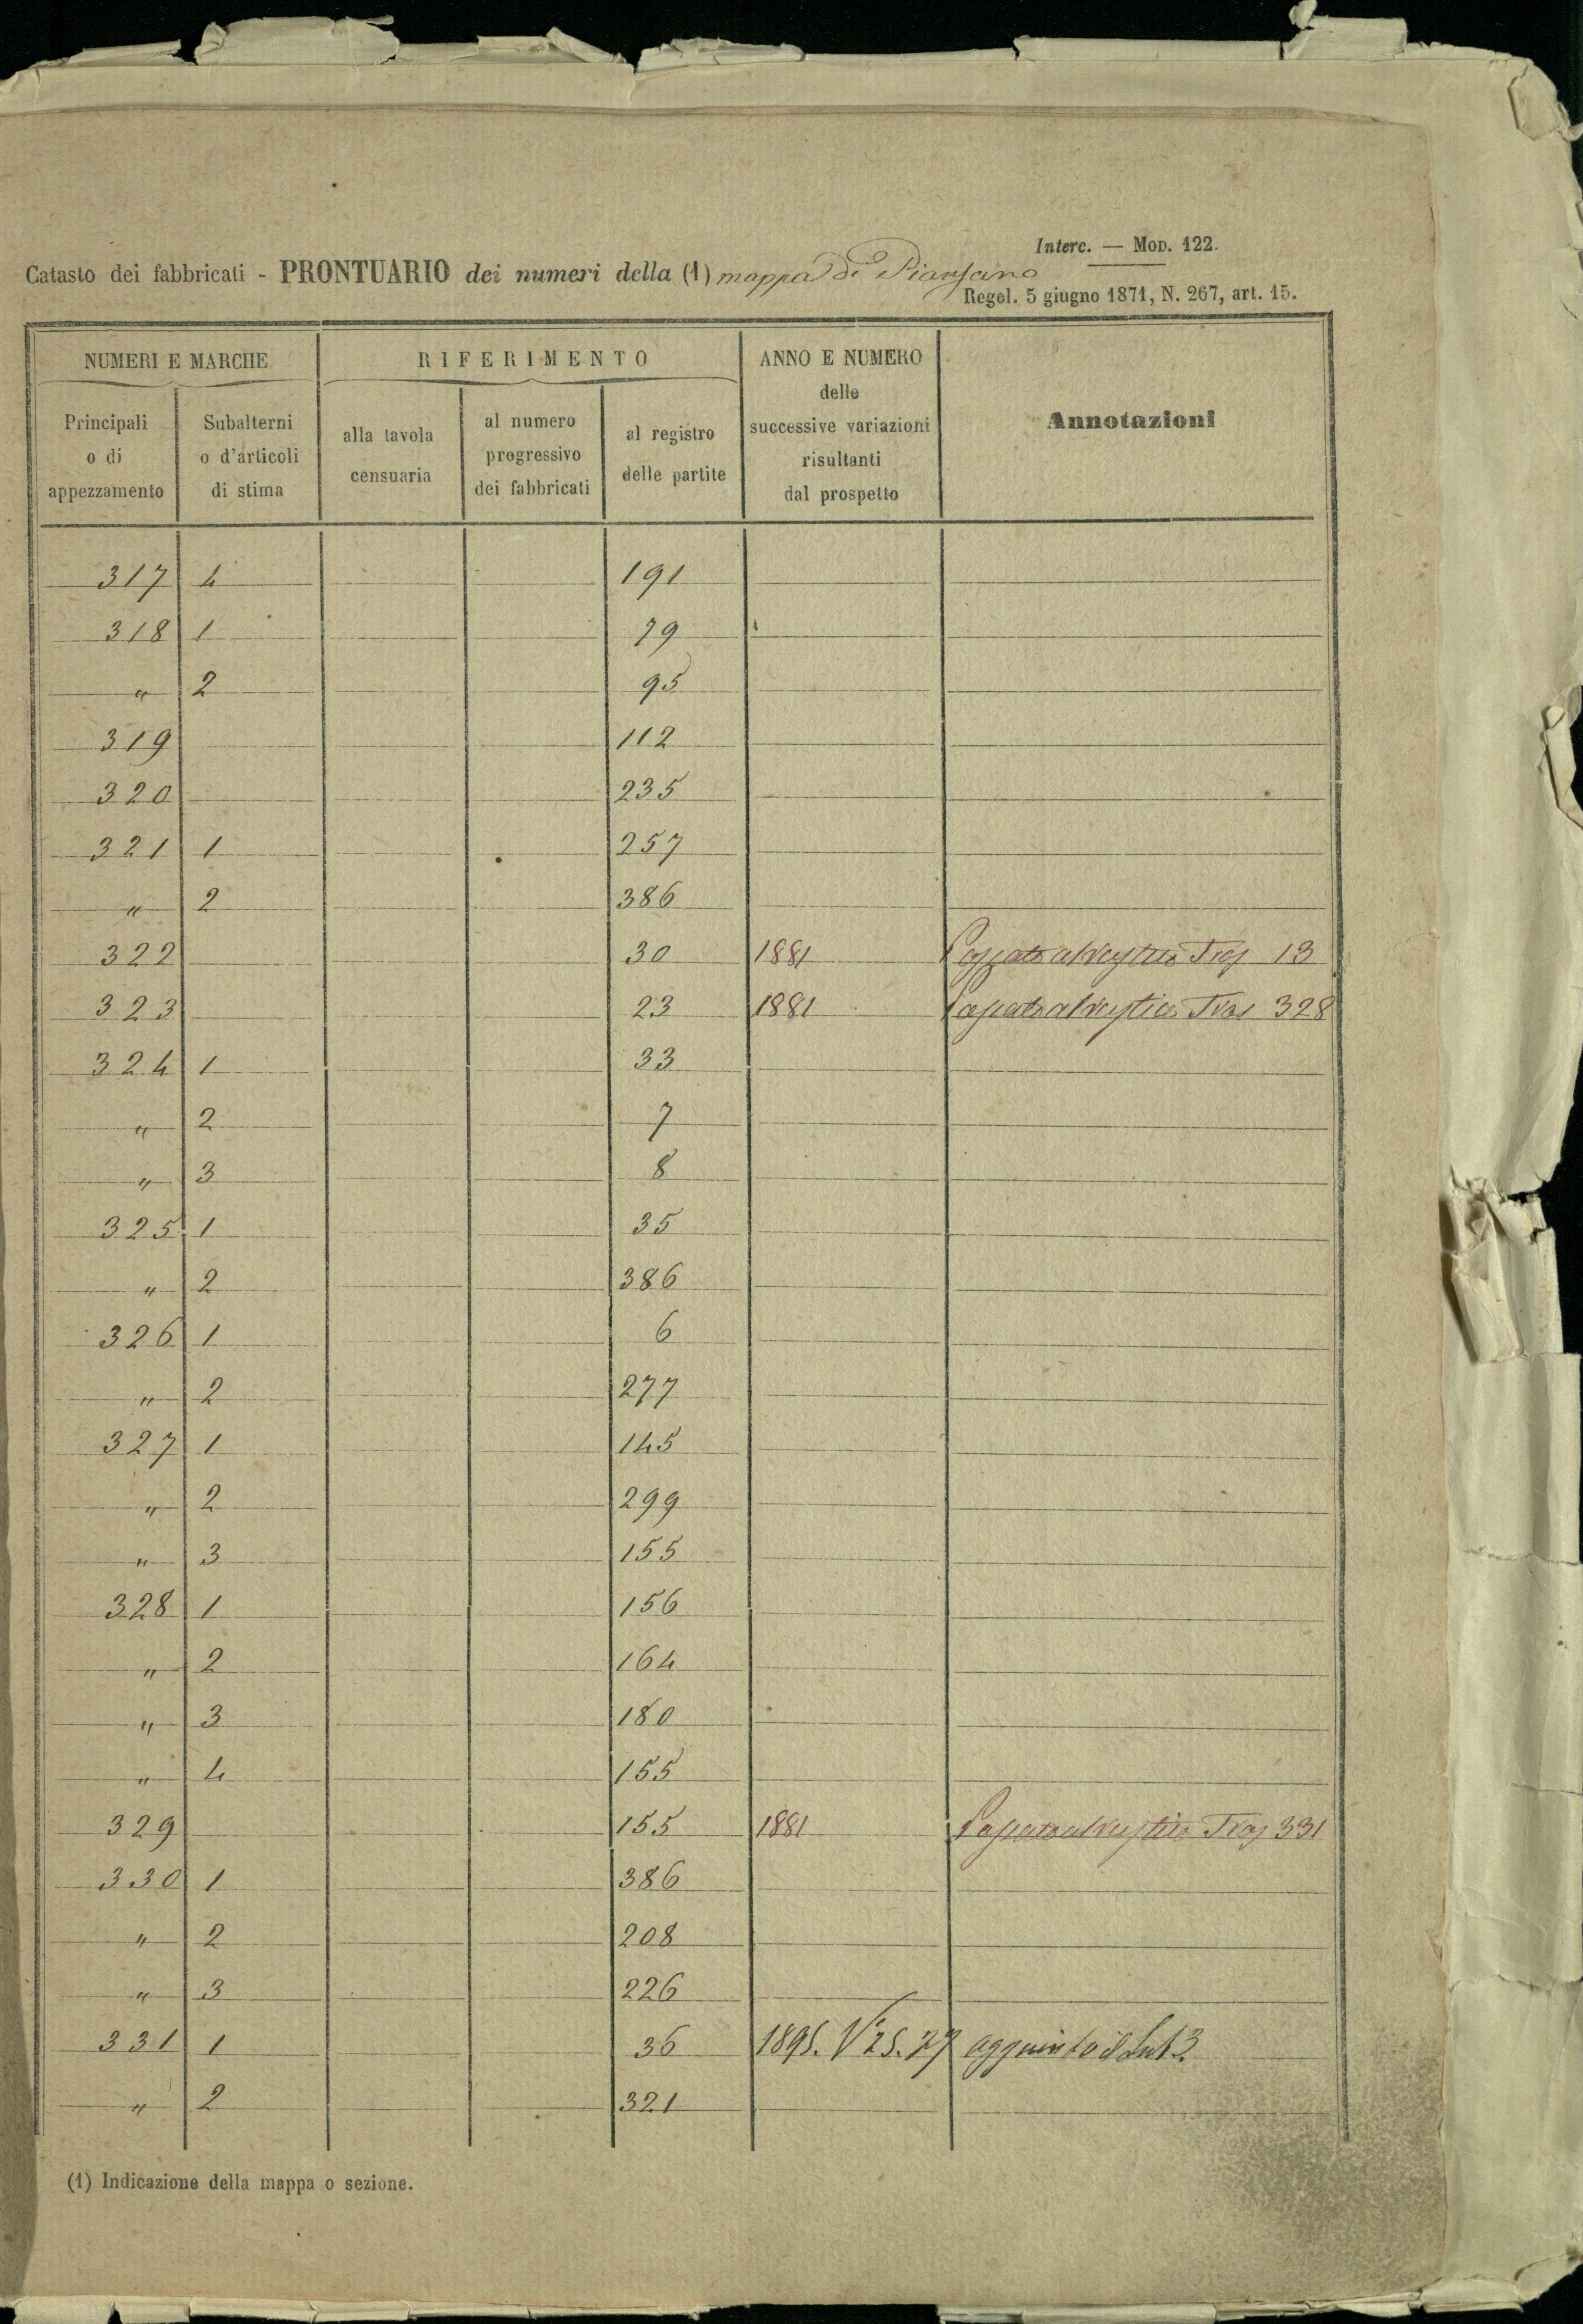 Interc. — MOD. 122.
Catasto dei fabbricati - PRONTUARIO dei numeri della (1) mappa di Piansano
Regol. 5 giugno 1871, N. 267, art. 15.
NUMERI E MARCHE RIFERIMENTO ANNO E NUMERO delle successive variazioni risultanti dal prospetto Annotazioni
Principali o di appezzamento Subalterni o d'articoli di stima alla tavola censuaria al numero progressivo dei fabbricati al registro delle partite
317 4 191
318 1 79
" 2 95
319 112
320 235
321 1 257
" 2 386
322 30 1881 Passato al rustico 13
323 23 1881 Passato al rustico 328
324 1 33
" 2 7
" 3 8
325 1 35
" 2 386
326 1 6
" 2 277
327 1 145
" 2 299
" 3 155
328 1 156
" 2 164
" 3 180
" 4 155
329 155 1881 Passato al rustico 331
330 1 386
" 2 208
" 3 226
331 1 36 aggiunto il Sub 3
" 2 321
(1) Indicazione della mappa o sezione.